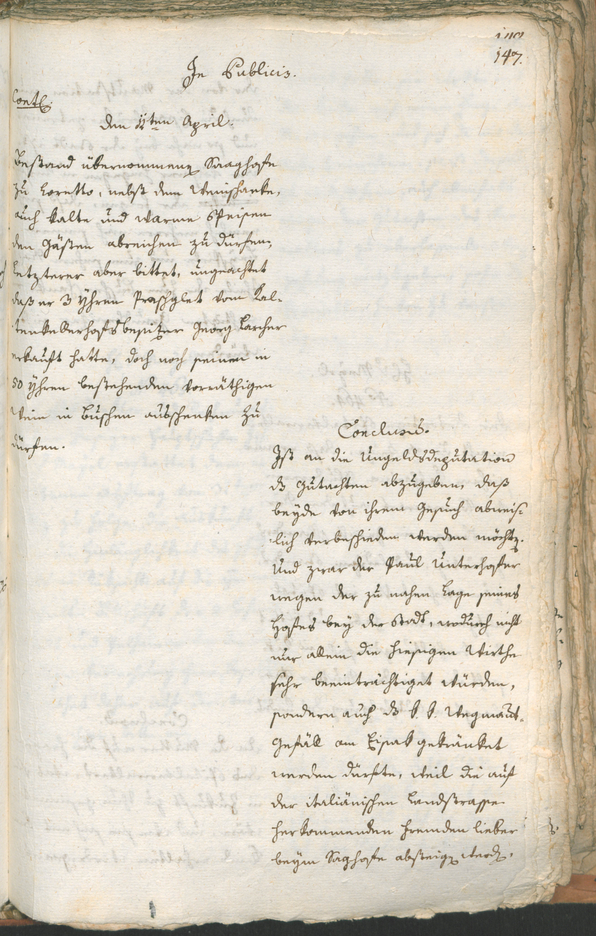 147.
In Publicis.
Contl.
den 4ten April.
Bestand übernommenen Saaghofe
zu Loretto, nebst dem Weinschanke,
auch kalte und warme Speisen
den Gästen abreichen zu dürfen,
letzterer aber bittet, ungeachtet
daß er 3 Yhren Praschglet vom Kal-
tenkellerhofsbesizer Georg Larcher
erkauft hatte, doch noch seinen in
50 Yhren bestehenden vorräthigen
Wein in Buschen ausschenken zu
dürfen.
Conclusis.
Ist an die Ungeldsdeputation
das Gutachten abzugeben, daß
beyde von ihrem Gesuch abweis-
lich verbeschieden werden möchten.
Und zwar der Paul Unterhofer
wegen der zu nahen Lage seines
Hofes bey der Stadt, wodurch nicht
nur allein die hiesigen Wirthe
sehr beeinträchtiget würden,
sondern auch das k. k. Wegmaut-
gefäll am Eisak gekränket
werden dürfte, weil die auf
der italiänischen Landstrasse
herkommenden Fremden lieber
beym Saghofe absteigen werden,